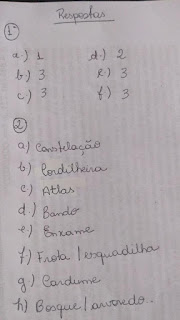 Respostas
1º
a.) 1 d.) 2
b.) 3 e.) 3
c.) 3 f.) 3
2
a) Constelação
b) Cordilheira
c) Atlas
d.) Bando
e) Enxame
f) Frota / esquadilha
g) Cardume
h) Bosque / arvoredo.